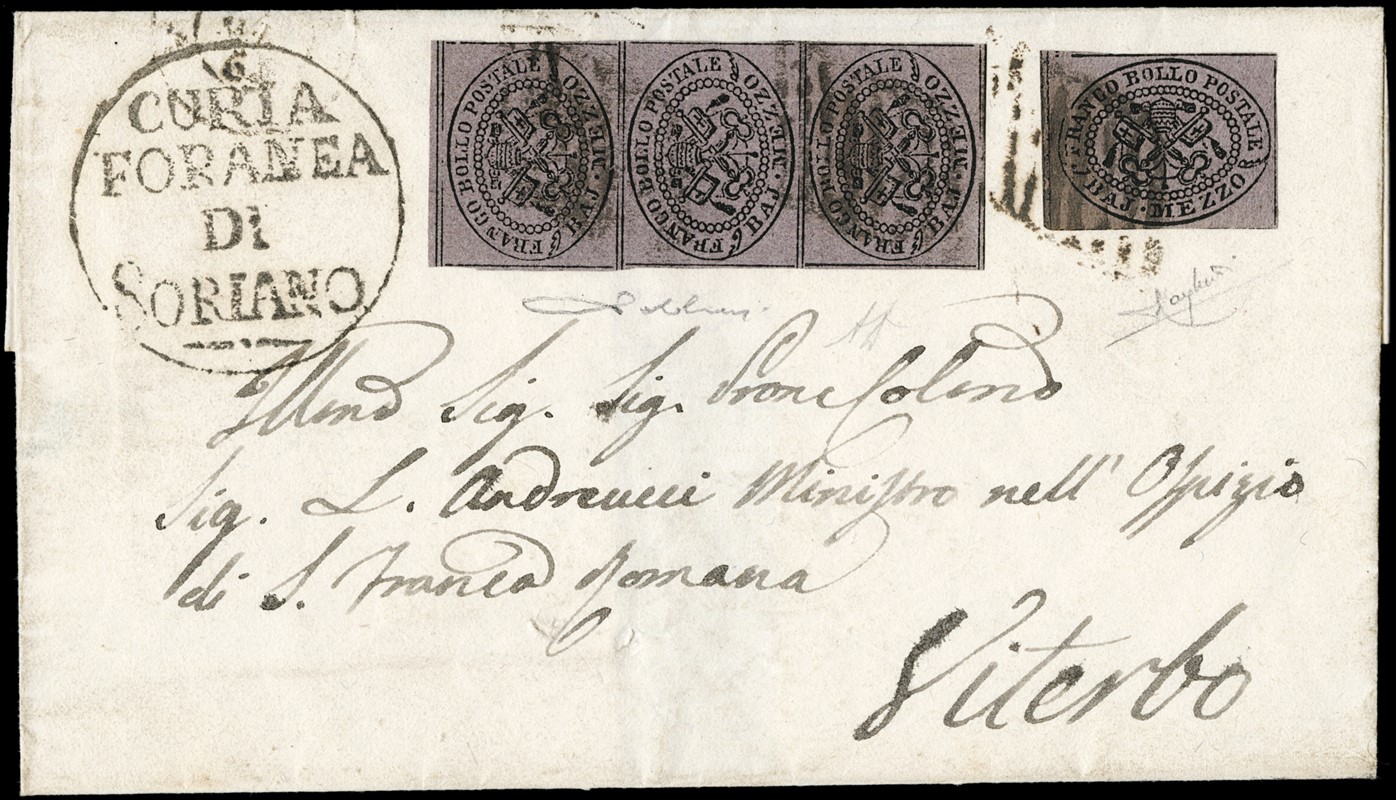 CURIA
FORANEA
DI
SORIANO
FRANCO BOLLO POSTALE
BAJ · MEZZO
FRANCO BOLLO POSTALE
BAJ · MEZZO
FRANCO BOLLO POSTALE
BAJ · MEZZO
FRANCO BOLLO POSTALE
BAJ · MEZZO
Sig. Sig.
Sig. L. Andreucci Ministro nell' Ospizio
di S. Franca Romana
Viterbo